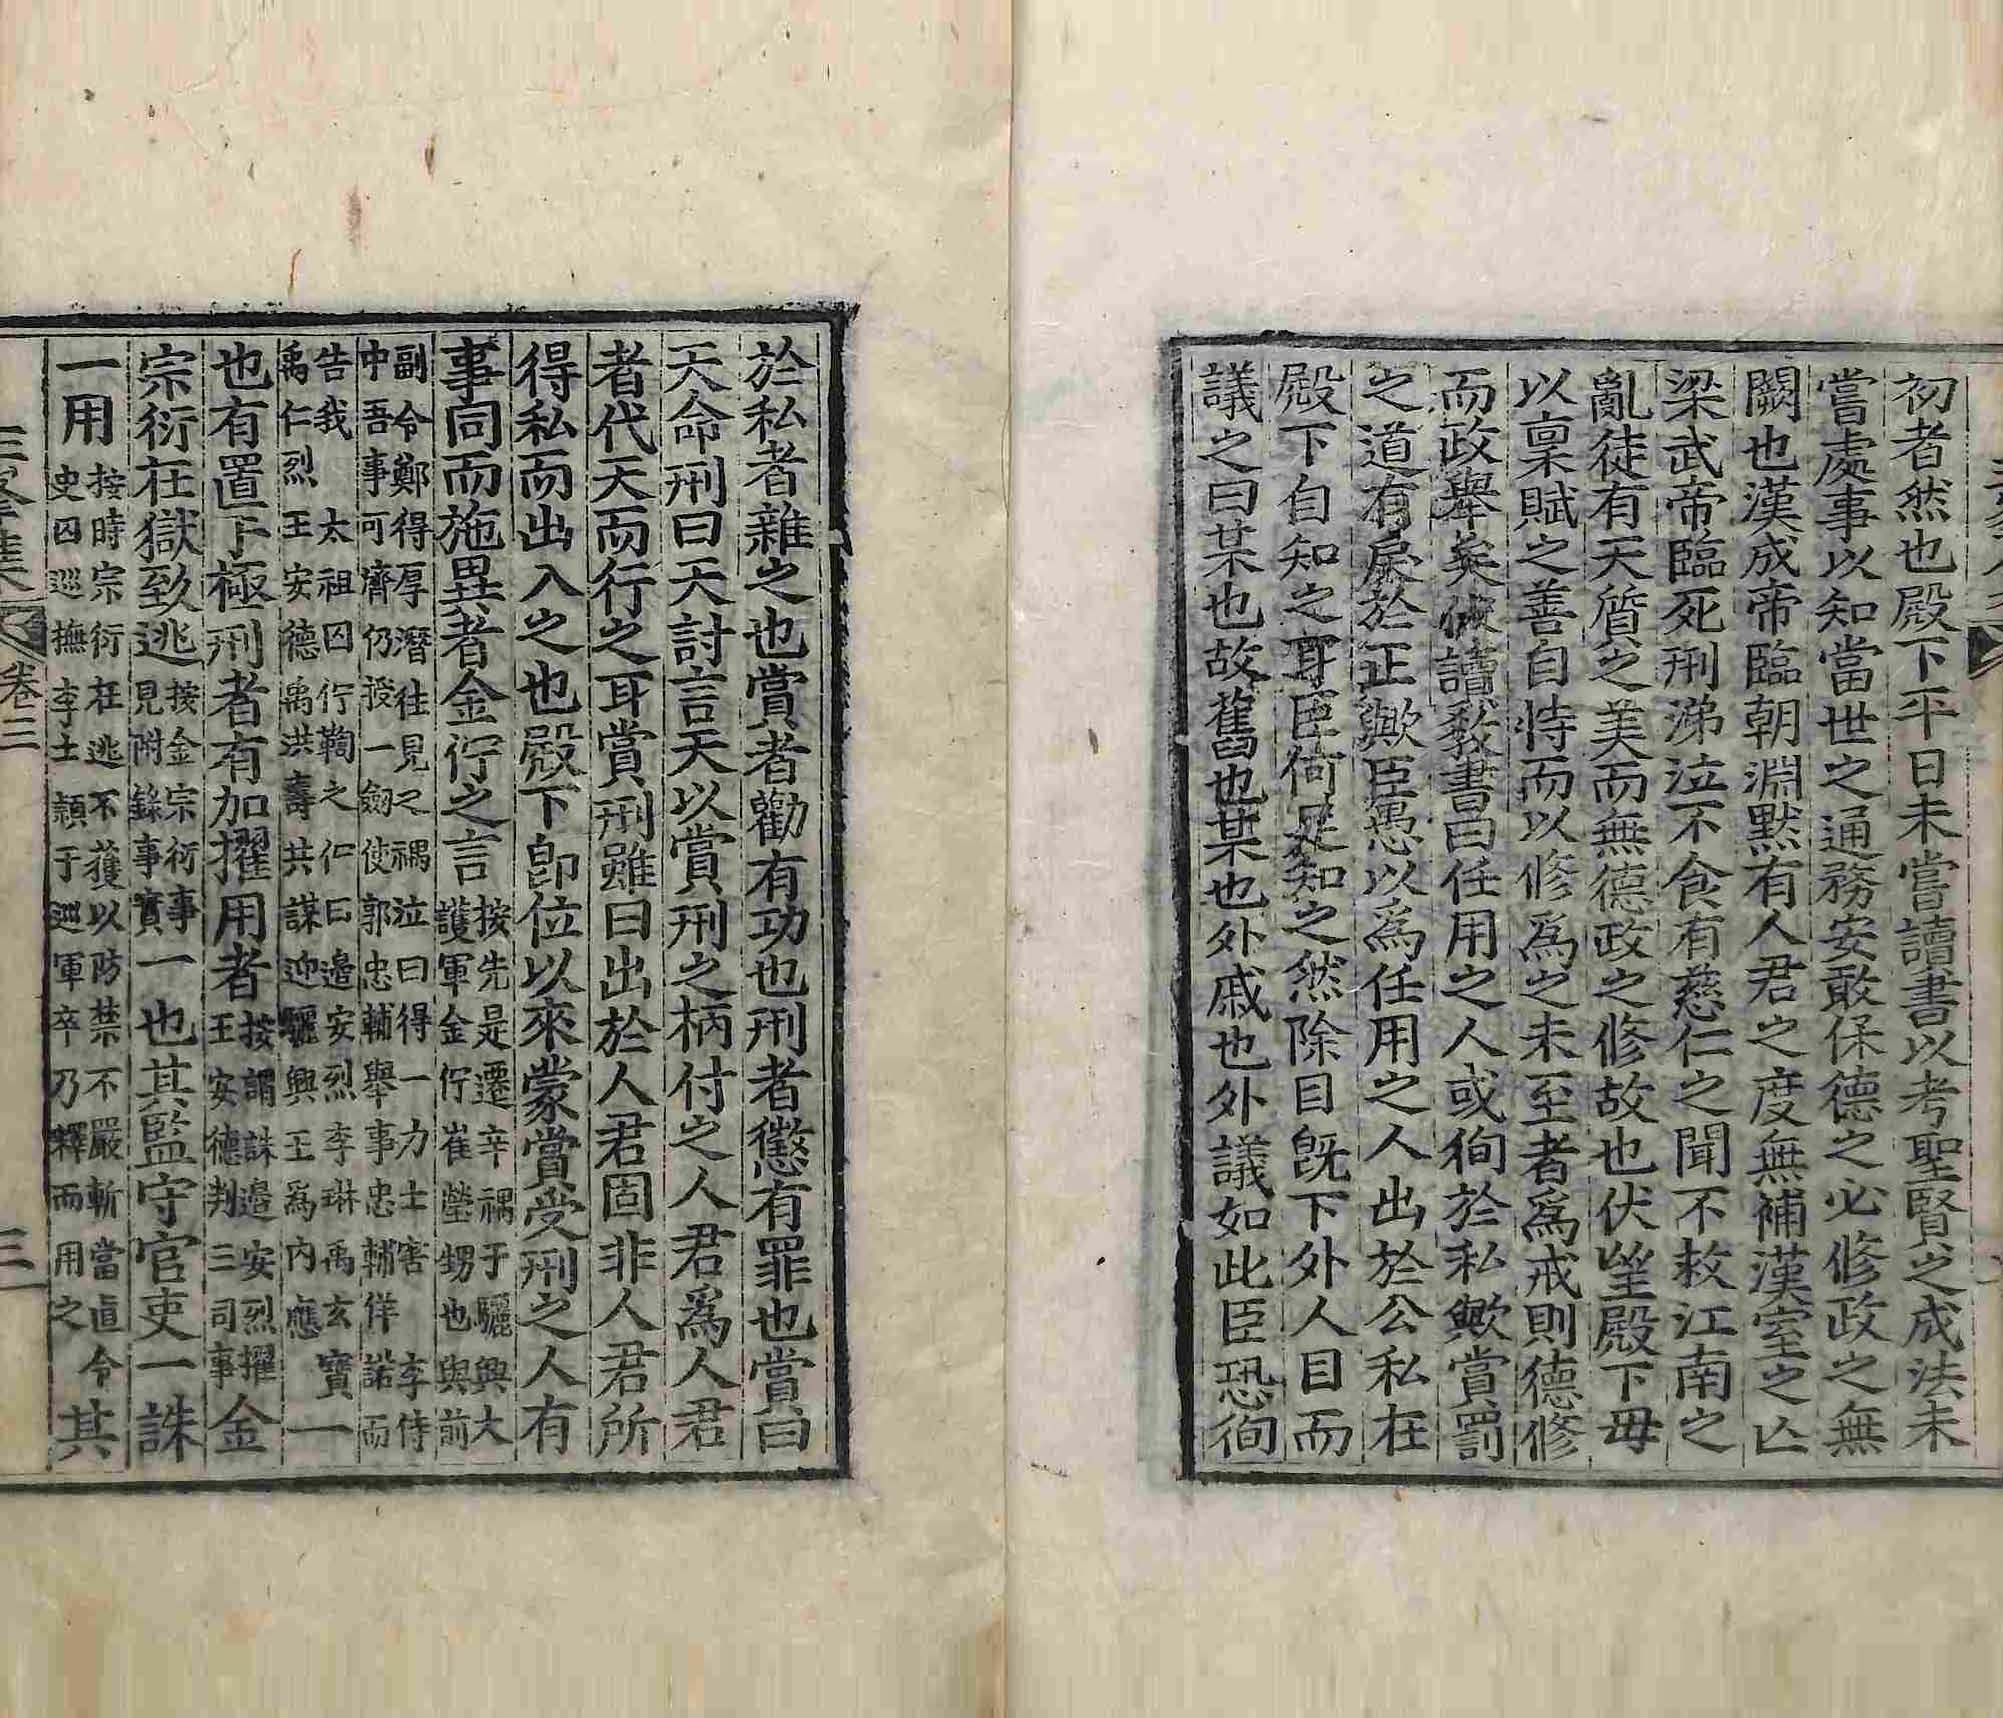 初者然也殿下平日未嘗讀書以考聖賢之成法未
嘗處事以知當世之通務安敢保德之必修政之無
闕也漢成帝臨朝淵黙有人君之度無補漢室之亡
梁武帝臨死刑涕泣不食有慈仁之聞不救江南之
亂徒有天質之美而無德政之修故也伏望殿下毋
以稟賦之善自恃而以修爲之未至者爲戒則德修
而政舉矣伏讀敎書曰任用之人或徇於私歟賞罰
之道有戾於正歟臣愚以爲任用之人出於公私在
殿下自知之耳臣何足知之然除目旣下外人目而
議之曰某也故舊也某也外戚也外議如此臣恐徇
於私者雜之也賞者勸有功也刑者懲有罪也賞曰
天命刑曰天討言天以賞刑之柄付之人君爲人君
者代天而行之耳賞刑雖曰出於人君固非人君所
得私而出入之也殿下卽位以來蒙賞受刑之人有
事同而施異者金佇之言
按先是遷辛禑于驪興大
護軍金佇崔瑩甥也與前
副令鄭得厚潛往見之禑泣曰得一力士害 李侍
中吾事可濟仍授一劒使郭忠輔舉事忠輔佯諾而
告我 太祖囚佇鞫之佇曰邉安烈李琳禹玄寶
禹仁烈王安德禹洪壽共謀迎驪興王爲內應
一
也有置下極刑者有加擢用者
按謂誅邉安烈擢
王安德判三司事
金
宗衍在獄致逃
按金宗衍事
見附錄事實
一也其監守官吏一誅
一用
按時宗衍在逃不獲以防禁不嚴斬當直令
史囚巡撫李士穎于巡軍卒乃釋而用之
其
卷三
三